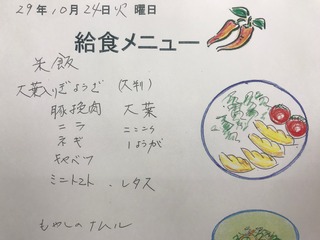 29年 10月 24日 火 曜日
給食メニュー
米飯
大葉入りぎょうざ (大判)
豚挽肉 大葉
ニラ ニンニク
ネギ しょうが
キャベツ
ミニトマト ・レタス
もやしのナムル